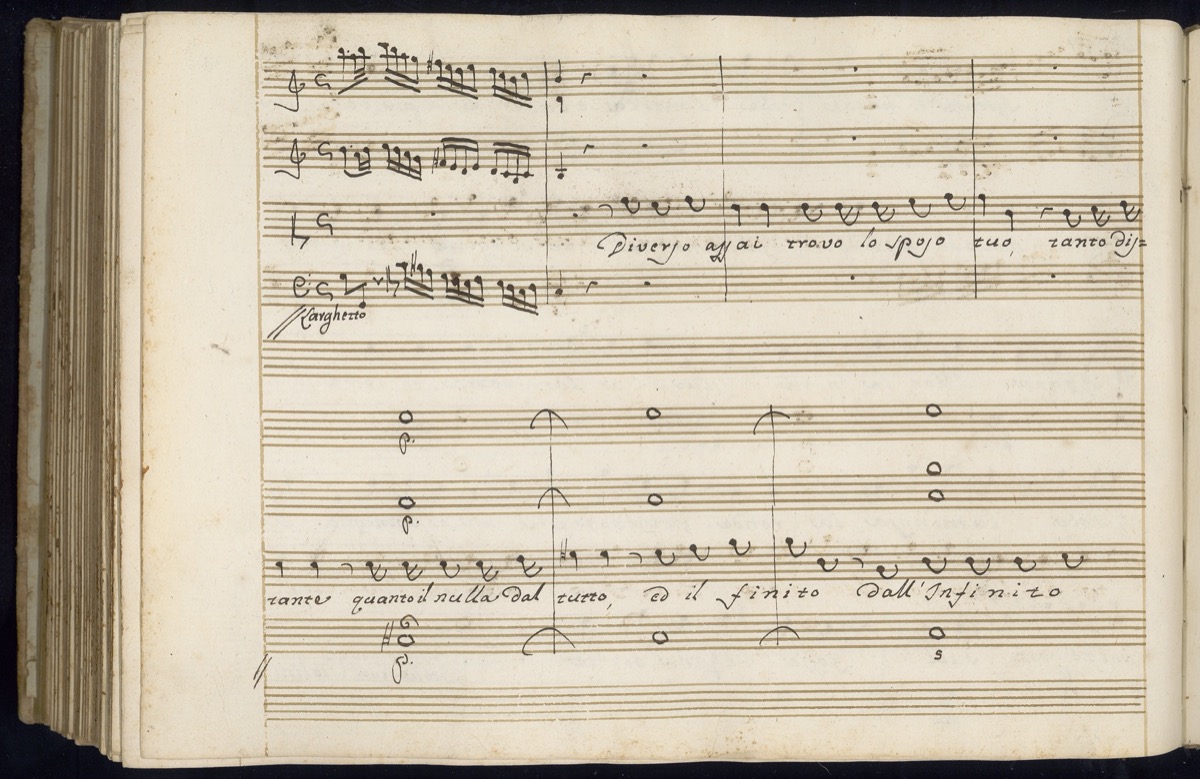 Diverso assai trovo lo sposo tuo, tanto dis=
Larghetto
p.
p.
tante quanto il nulla dal tutto, ed il finito dall'Infinito
6
p.
5